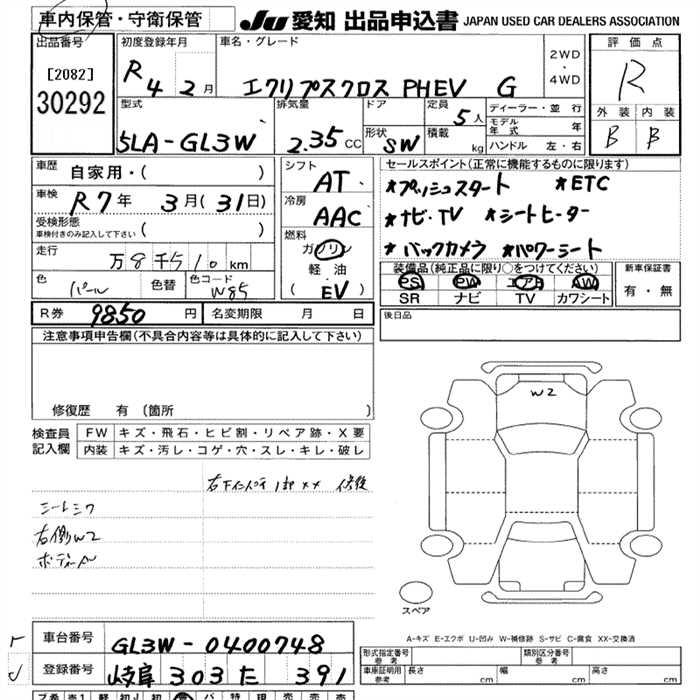 車内保管・守衛保管 JU 愛知 出品申込書 JAPAN USED CAR DEALERS ASSOCIATION
出品番号 初度登録年月 車名・グレード 2WD・4WD 評価点
[2082] R 4 2月 エクリプスクロス PHEV G R
30292
型式 排気量 ドア 定員 5人 ディーラー・並行 外装 内装
モデル年式 年
5LA-GL3W 2.35CC 形状 SW 積載 kg ハンドル 左・右 B B
車歴 自家用・( ) シフト AT セールスポイント(正常に機能するものに限ります)
車検 R7年 3月(31日) 冷房 AAC *プッシュスタート *ETC
受検形態 車検付きのみ記入して下さい ( ) *ナビ・TV *シートヒーター
走行 万8千510km 燃料 ガソリン *バックカメラ *パワーシート
軽油
色 パール 色替 色コード W85 (EV)
装備品(純正品に限り○をつけてください) 新車保証書
PS PW エアB AW 有・無
SR ナビ TV カワシート
R券 9850円 名変期限 月 日 後日品
注意事項申告欄(不具合内容等は具体的に記入して下さい)
修復歴 有(箇所 )
W2
検査員記入欄 FW キズ・飛石・ヒビ割・リペア跡・X要
内装 キズ・汚し・コゲ・穴・スレ・キレ・破し
右下 XX 修後
右側W2
スペア
A-キズ E-エクボ U-凹み W-補修跡 S-サビ C-腐食 XX-交換済
車台番号 GL3W-0400748 形式指定番号 参考 類別区分番号 参考
登録番号 岐阜 303 た 391 車庫証明用 参考 長さ cm 幅 cm 高さ cm